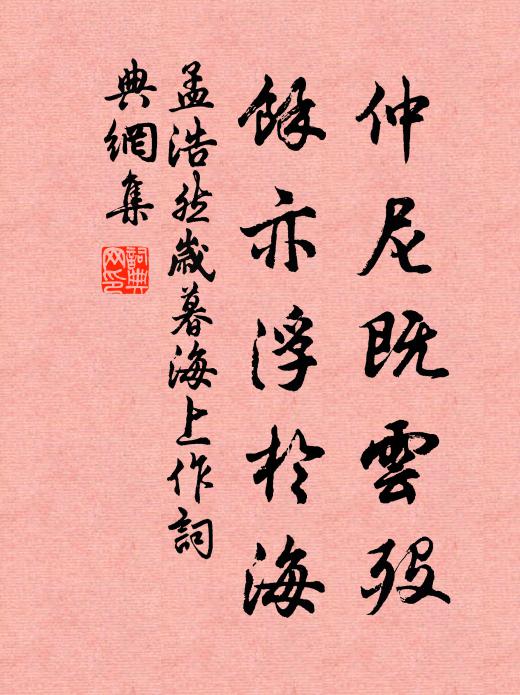 仲尼既雲歿
餘亦浮於海
孟浩然歲暮海上作詞
典網集
詞典
网印